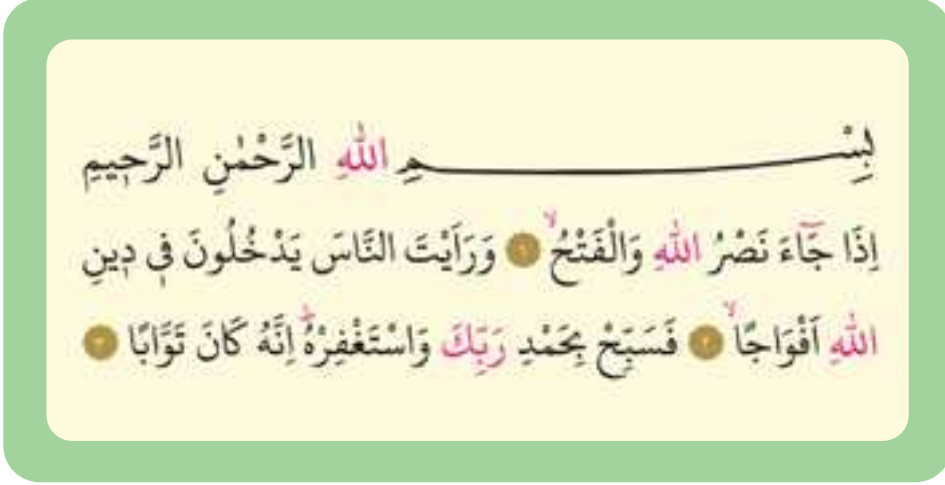 بِسْــــــــمِ اللهِ الرَّحْمٰنِ الرَّحٖيمِ
اِذَا جَٓاءَ نَصْرُ اللهِ وَالْفَتْحُۙ ﴿١﴾ وَرَاَيْتَ النَّاسَ يَدْخُلُونَ فٖي دٖينِ
اللهِ اَفْوَاجًاۙ ﴿٢﴾ فَسَبِّحْ بِحَمْدِ رَبِّكَ وَاسْتَغْفِرْهُۜ اِنَّهُ كَانَ تَوَّابًا ﴿٣﴾